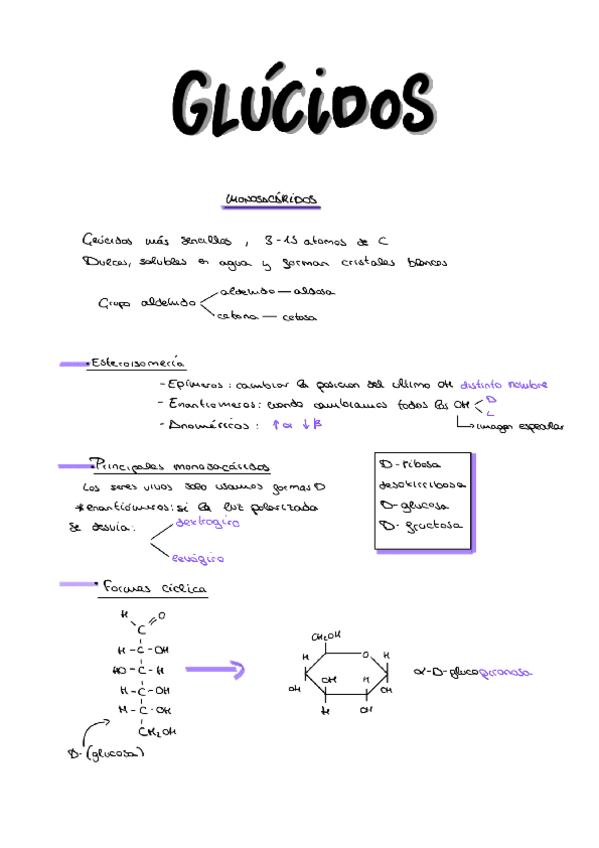 GLÚCIDOS
MONOSACÁRIDOS
Glúcidos más sencillos, 3-15 atomos de C
Dulces, solubles en agua y forman cristales blancos
Grupo aldehido
aldehido — aldosa
cetona — cetosa
Esteroisomería
- Epímeros: cambiar la posicion del ultimo OH distinto nombre
- Enantiomeros: cuando cambiamos todos los OH
D
L
imagen especular
- Anoméricos: ↑α ↓β
Principales monosacáridos
Los seres vivos solo usamos formas D
*enantiómeros: si la luz polarizada
se desvía:
dextrogiro
levógiro
D-ribosa
desoxirribosa
D-glucosa
D-fructosa
Formas cíclica
H O
C
H - C - OH
HO - C - H
H - C - OH
H - C - OH
CH₂OH
D-(glucosa)
CH₂OH
H O H
OH OH H OH
H OH
α-D-glucopiranosa